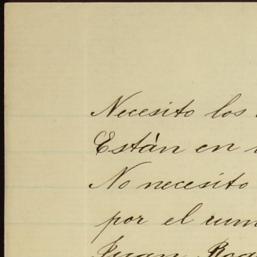 Necesito los
Están en
No necesito
por el rum
Juan Rod